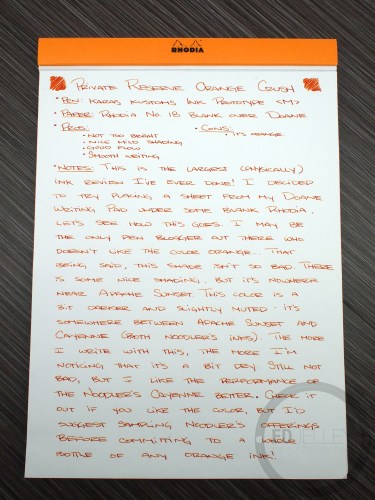 RHODIA
PRIVATE RESERVE ORANGE CRUSH
• PEN: KARAS KUSTOMS INK PROTOTYPE <M>
• PAPER: RHODIA NO. 18 BLANK OVER DOANE
• PROS:
• NOT TOO BRIGHT
• NICE MILD SHADING
• GOOD FLOW
• SMOOTH WRITING
• CONS:
• IT'S ORANGE
• NOTES: THIS IS THE LARGEST (PHYSICALLY)
INK REVIEW I'VE EVER DONE! I DECIDED
TO TRY PLACING A SHEET FROM MY DOANE
WRITING PAD UNDER SOME BLANK RHODIA.
LET'S SEE HOW THIS GOES. I MAY BE
THE ONLY PEN BLOGGER OUT THERE WHO
DOESN'T LIKE THE COLOR ORANGE... THAT
BEING SAID, THIS SHADE ISN'T SO BAD. THERE
IS SOME NICE SHADING, BUT IT'S NOWHERE
NEAR APACHE SUNSET. THIS COLOR IS A
BIT DARKER AND SLIGHTLY MUTED - IT'S
SOMEWHERE BETWEEN APACHE SUNSET AND
CAYENNE (BOTH NOODLER'S INKS). THE MORE
I WRITE WITH THIS, THE MORE I'M
NOTICING THAT IT'S A BIT DRY. STILL NOT
BAD, BUT I LIKE THE PERFORMANCE OF
THE NOODLER'S CAYENNE BETTER. CHECK IT
OUT IF YOU LIKE THE COLOR, BUT I'D
SUGGEST SAMPLING NOODLER'S OFFERINGS
BEFORE COMMITTING TO A WHOLE
BOTTLE OF ANY ORANGE INK!